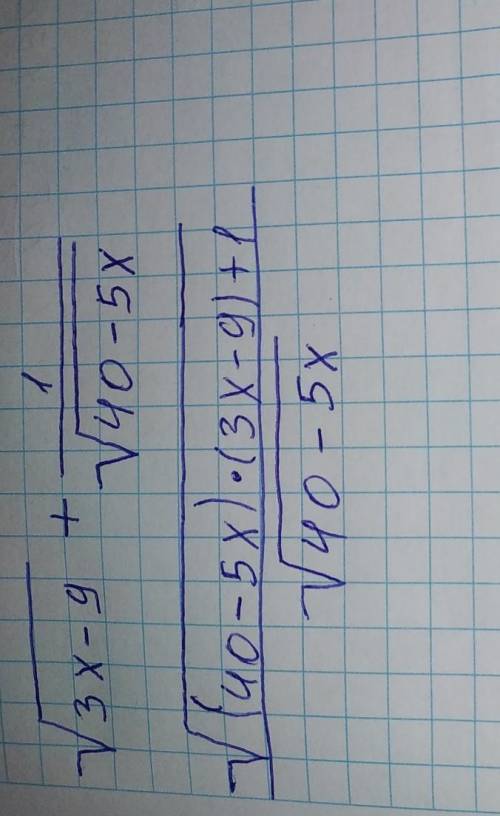 √3x-9 + 1/√40-5x
√(40-5x)·(3x-9)+1
√40-5x